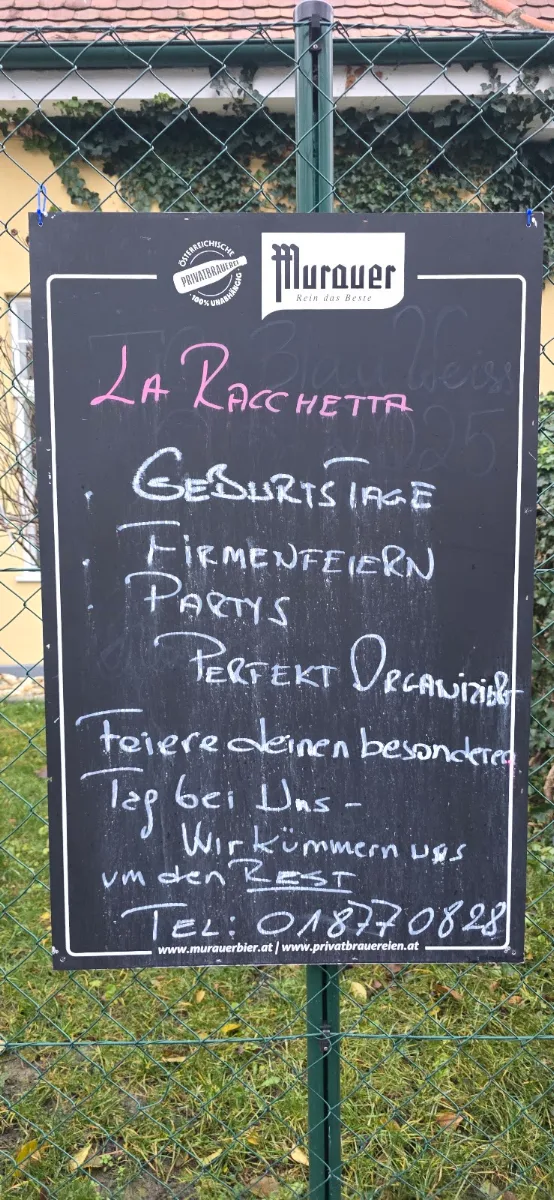 ÖSTERREICHISCHE
PRIVATBRAUEREI
100% UNABHÄNGIG
Murauer
Rein das Beste
Blau Weiss
LA RACCHETTA
· GEBURTSTAGE
· FIRMENFEIERN
· PARTYS
PERFEKT ORGANIZIERT
Feiere deinen besonderen
Tag bei Uns -
Wir kümmern uns
um den REST
TEL: 018770828
www.murauerbier.at | www.privatbrauereien.at